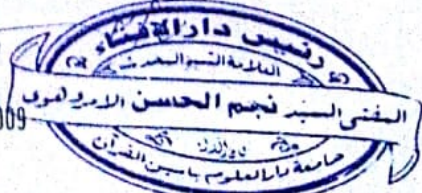 رئيس دارالافتاء
العلامة الشيخ المحدث
المفتي السيد نجم الحسن الامروهوي
009
جامعة دارالعلوم ياسين القرآن